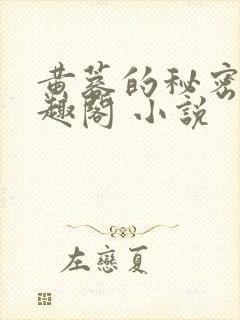 黄蓉的秘密
趣閣 小說
左戀夏